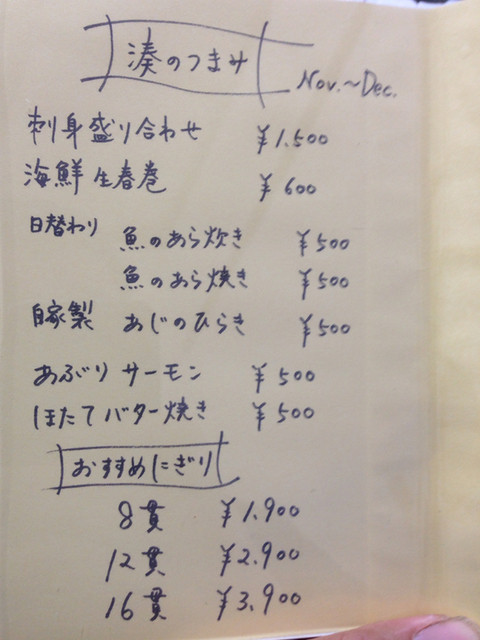 湊のつまみ
Nov.~Dec.
刺身盛り合わせ ¥1.500
海鮮生春巻 ¥600
日替わり 魚のあら炊き ¥500
魚のあら焼き ¥500
自家製 あじのひらき ¥500
あぶりサーモン ¥500
ほたてバター焼き ¥500
おすすめにぎり
8貫 ¥1.900
12貫 ¥2.900
16貫 ¥3.900